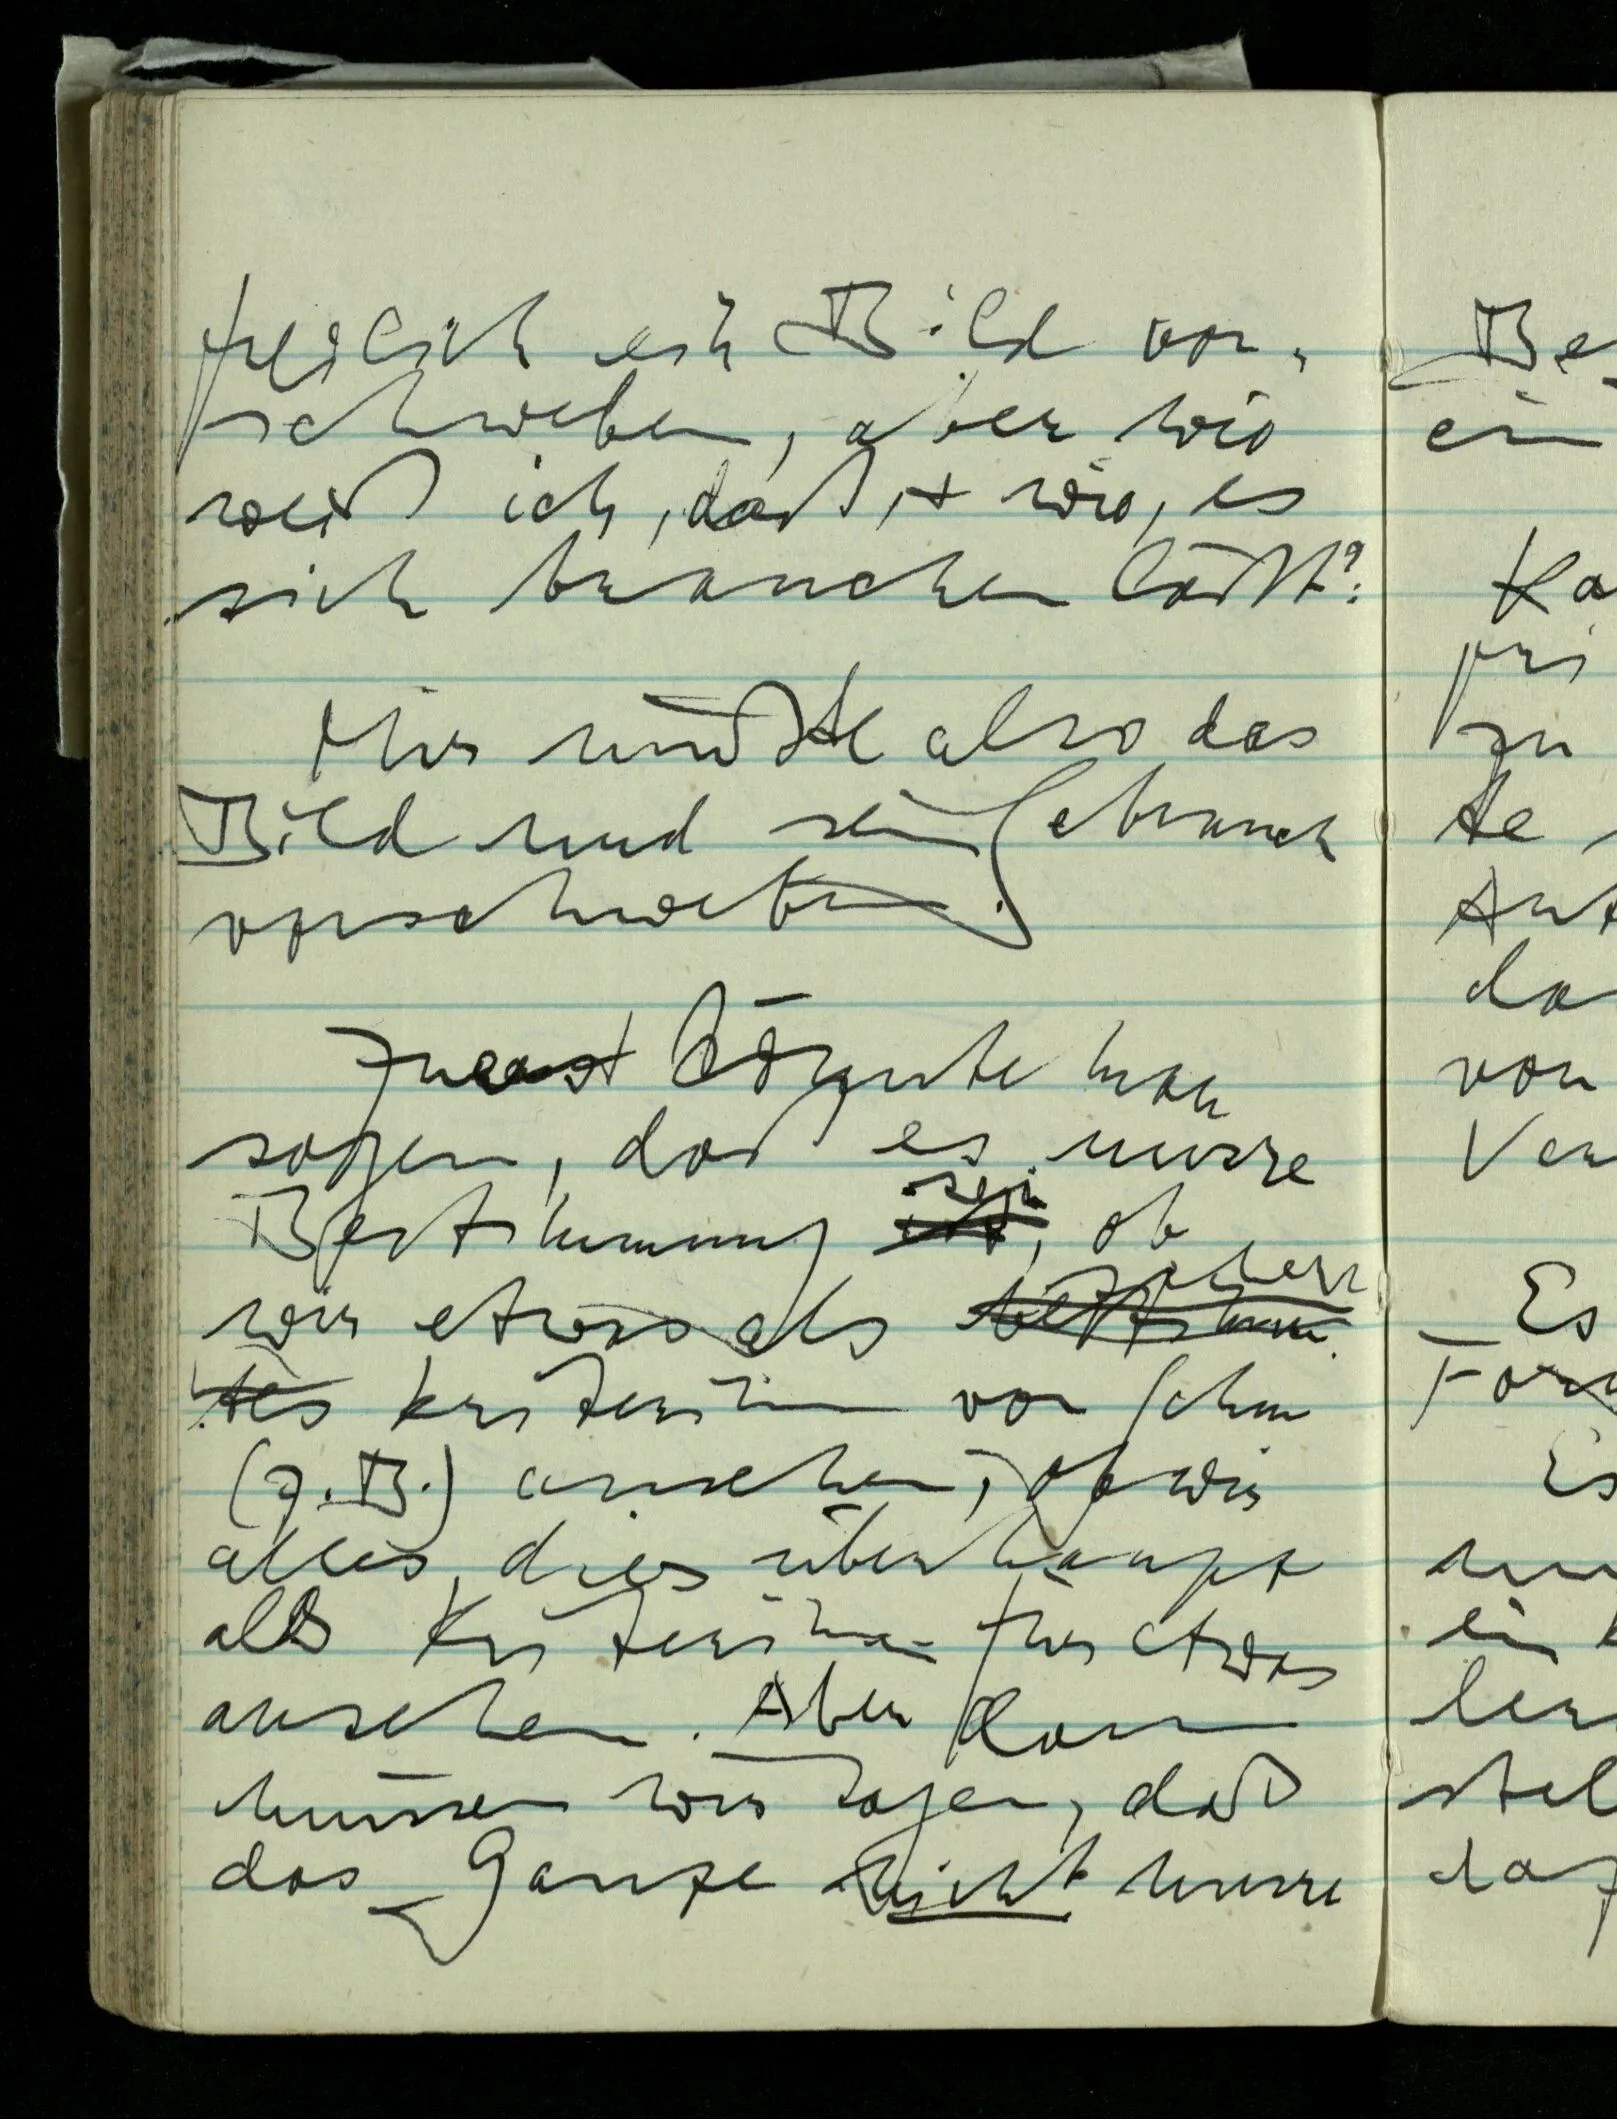 freilich ein Bild vor-
schweben, aber wie
weiß ich, daß, + wie, es
sich brauchen läßt?
Mir müßte also das
Bild und sein Gebrauch
vorschweben.
Zuerst könnte man
sagen, daß es unsre
Bestimmung ist sei, ob
wir etwas als bestimm-
tes Kriterium von
(z.B.) ansehen, ob wir
alles dies überhaupt
als Kriterium für etwas
ansehen. Aber dann
müssen wir sagen, daß
das Ganze nicht unsre
Be
ein
Ka
pri
zu
te
Ant
da
von
Ver
Es
Form
Es
ein
stel